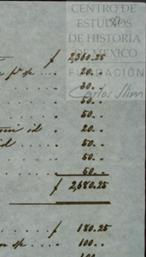 CENTRO DE
ESTUDIOS
DE HISTORIA
DE MEXICO
FUNDACIÓN
Carlos Slim
f 2,360.25
20..
30..
50..
50..
id 20..
id 50..
50..
50..
f 2,680.25
f 180.25
100..
100..